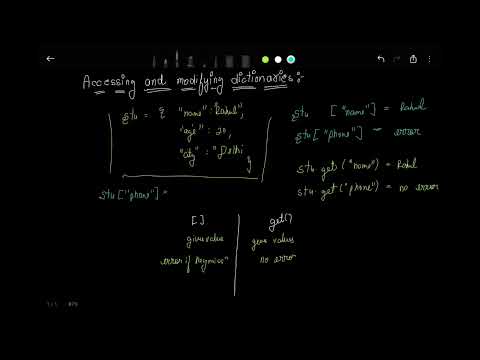 Accessing and modifying dictionaries:-
stu = { "name": "Rahul",
"age" : 20,
"city" : "Delhi
}
stu ["name"] = Rahul
stu["phone"] = error
stu.get("name") = Rahul
stu.get("phone") = no error
stu["phone"] =
[ ] get()
gives value gives values
error if no error